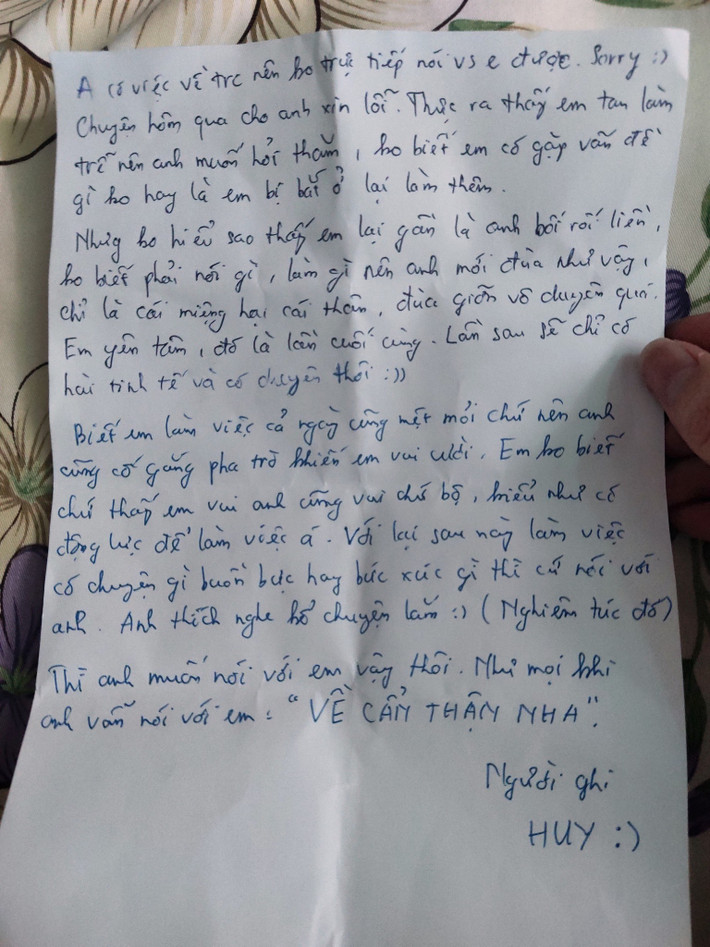 A có việc về trc nên ko trực tiếp nói vs e được. Sorry :)
Chuyện hôm qua cho anh xin lỗi. Thực ra thấy em tan làm
trễ nên anh muốn hỏi thăm, ko biết em có gặp vấn đề
gì ko hay là em bị bắt ở lại làm thêm.
Nhưg ko hiểu sao thấy em lại gần là anh bối rối liền,
ko biết phải nói gì, làm gì nên anh mới đùa như vậy,
chỉ là cái miệng hại cái thân, đùa giỡn vô duyên quá.
Em yên tâm, đó là lần cuối cùng. Lần sau sẽ chỉ có
hài tinh tế và có duyên thôi :))
Biết em làm việc cả ngày cũng mệt mỏi chứ nên anh
cũng cố gắng pha trò khiến em vui cười. Em ko biết
chứ thấy em vui anh cũng vui chứ bộ, kiểu như có
động lực để làm việc á. Với lại sau này làm việc
có chuyện gì buồn bực hay bức xúc gì thì cứ nói với
anh. Anh thích nghe kể chuyện lắm :) (Nghiêm túc đó)
Thì anh muốn nói với em vậy thôi. Như mọi khi
anh vẫn nói với em: "VỀ CẨN THẬN NHA".
Người ghi
HUY :)